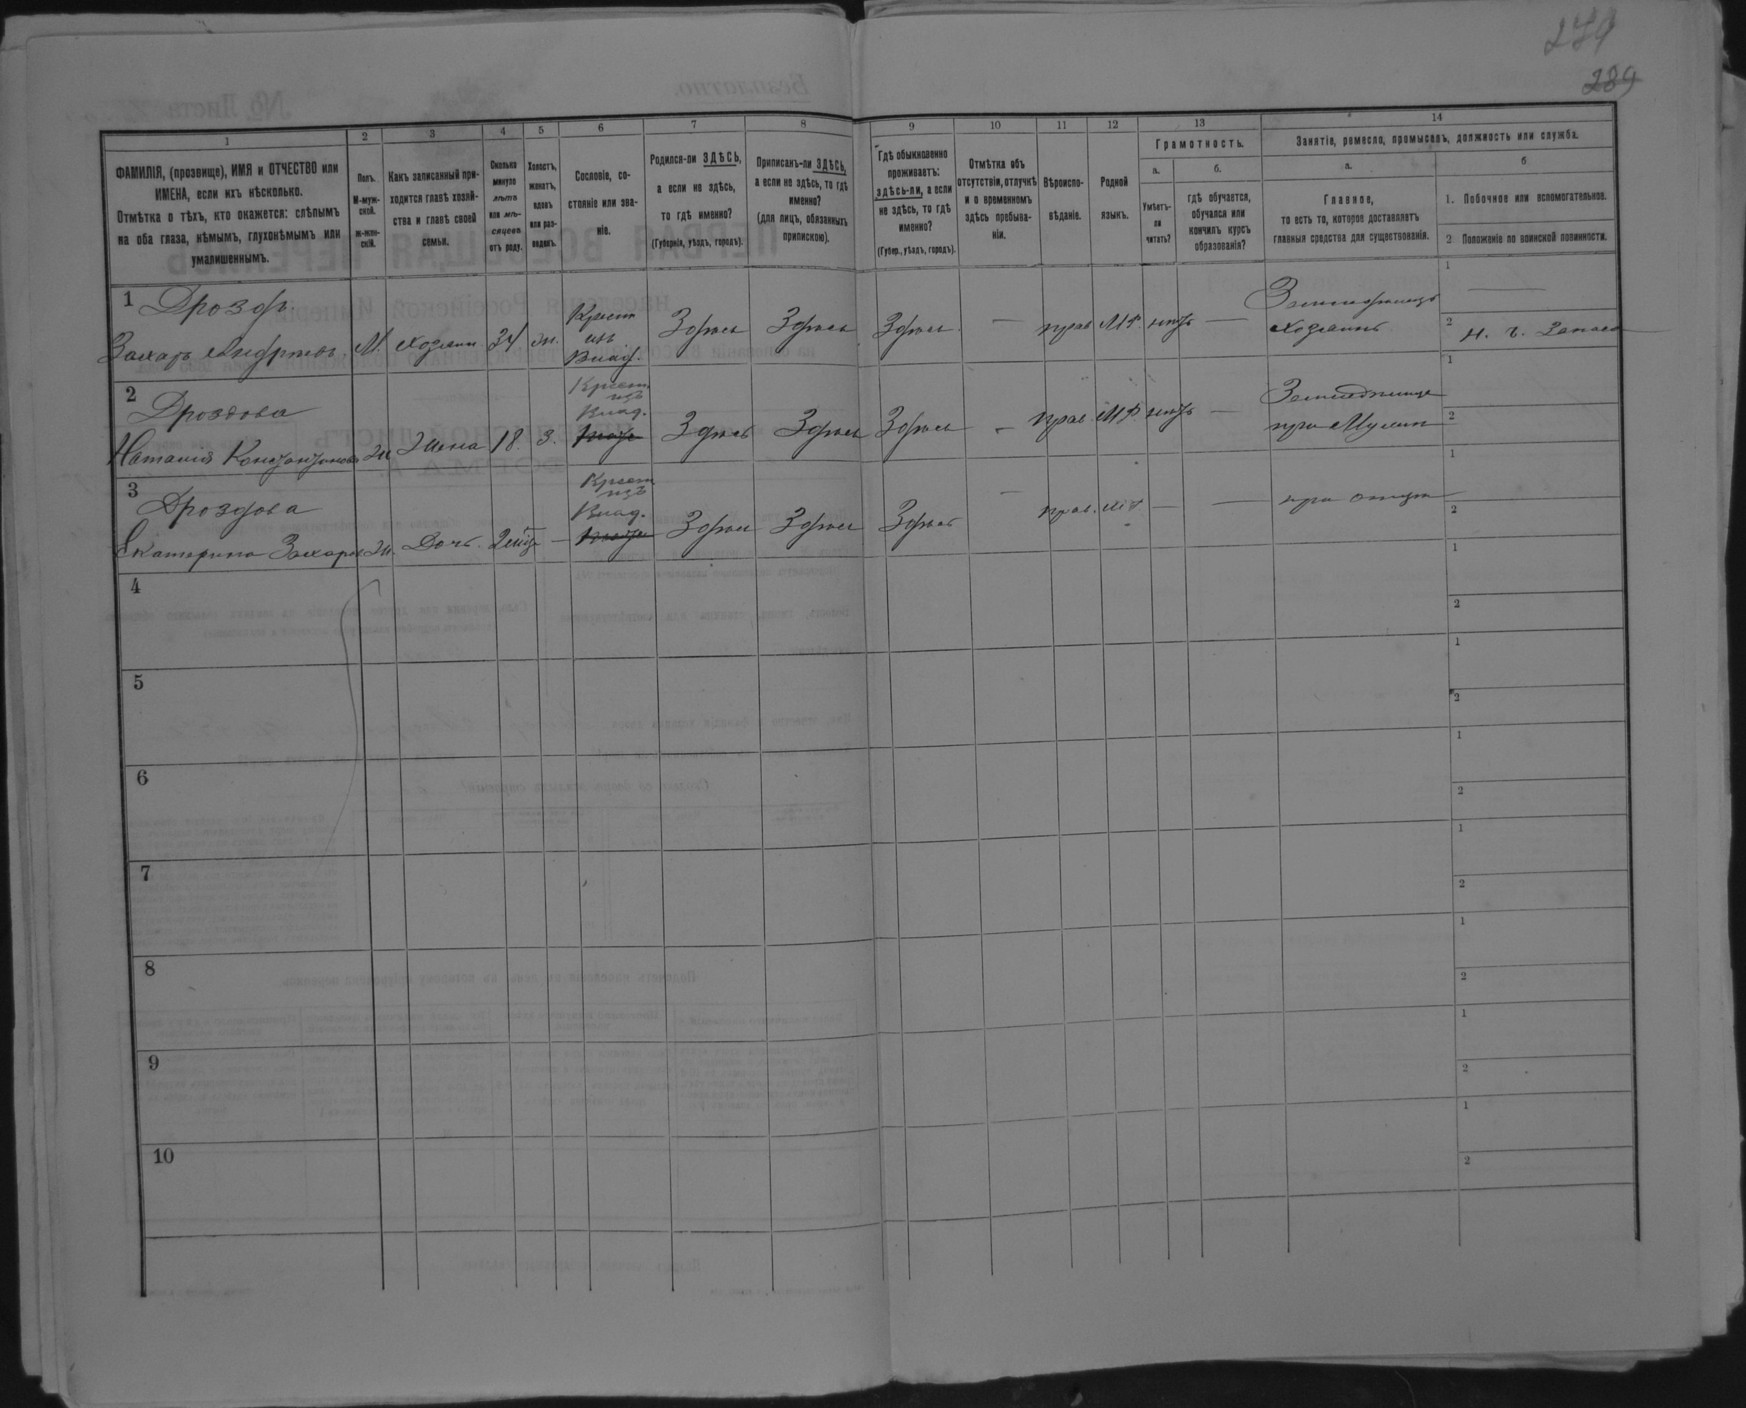 279
289
1
2
3
4
5
6
7
8
9
10
11
12
13
14
ФАМИЛІЯ, (прозвище), ИМЯ и ОТЧЕСТВО или
ИМЕНА, если ихъ нѣсколько.
Отмѣтка о тѣхъ, кто окажется: слѣпымъ
на оба глаза, нѣмымъ, глухонѣмымъ или
умалишеннымъ.
Полъ.
М-муж-
ской.
Ж-жен-
скій.
Какъ записанный при-
ходится главѣ хозяй-
ства и главѣ своей
семьи.
Сколько
минуло
лѣтъ
или мѣ-
сяцевъ
отъ роду.
Холостъ,
женатъ,
вдовъ
или раз-
веденъ.
Сословіе, со-
стояніе или зва-
ніе.
Родился-ли ЗДѢСЬ,
а если не здѣсь,
то гдѣ именно?
(Губернія, уѣздъ, городъ).
Приписанъ-ли ЗДѢСЬ,
а если не здѣсь, то гдѣ
именно?
(для лицъ, обязанныхъ
припискою).
Гдѣ обыкновенно
проживаетъ:
здѣсь-ли, а если
не здѣсь, то гдѣ
именно?
(Губер., уѣздъ, городъ).
Отмѣтка объ
отсутствіи, отлучкѣ
и о временномъ
здѣсь пребыва-
ніи.
Вѣроиспо-
вѣданіе.
Родной
языкъ.
Грамотность.
а.
Умѣетъ-
ли
читать?
б.
гдѣ обучается,
обучался или
кончилъ курсъ
образованія?
Занятіе, ремесло, промыселъ, должность или служба.
а.
Главное,
то есть то, которое доставляетъ
главныя средства для существованія.
б
1. Побочное или вспомогательное.
2 Положеніе по воинской повинности.
1 Дроздъ
Захаръ Андреевъ. М. хозяин 24 ж. Крест изъ Влад. Здѣсь Здѣсь Здѣсь — прав М.Р. нѣтъ — Земледѣлецъ хозяинъ
1 —
2
2 Дроздова
Наталія Константинова Ж Жена 18. З. Крест изъ Влад. Здѣсь Здѣсь Здѣсь - прав. М.Р. нѣтъ — при Мужѣ
1
2
3 Дроздова
Екатерина Захаро Ж. Дочь. — Крест изъ Влад. Здѣсь Здѣсь Здѣсь — прав. М.Р — — при отцѣ
1
2
4
1
2
5
1
2
6
1
2
7
1
2
8
1
2
9
1
2
10
1
2